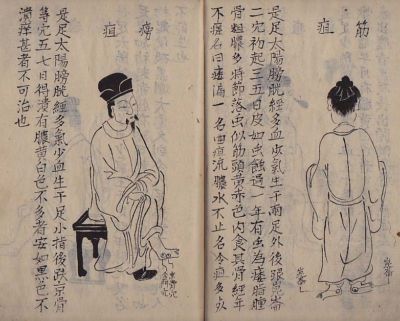 筋疽
是足太陽膀胱經多血少氣生于兩足外後踝崑崙
二穴初起三五日皮如虫蝕過一年有虫為瘻腫
骨粗膿多將節落虫似筋頭黃赤色內食其骨經年
不瘥名曰漏一名曲疽流膿水不止名冷疽多
崑崙
崑崙
疽
是足太陽膀胱經多氣少血生于足小指後京骨
等穴五七日得潰有膿黃白色不多者安如黑色不
潰痒甚者不可治也
京骨穴
金門穴